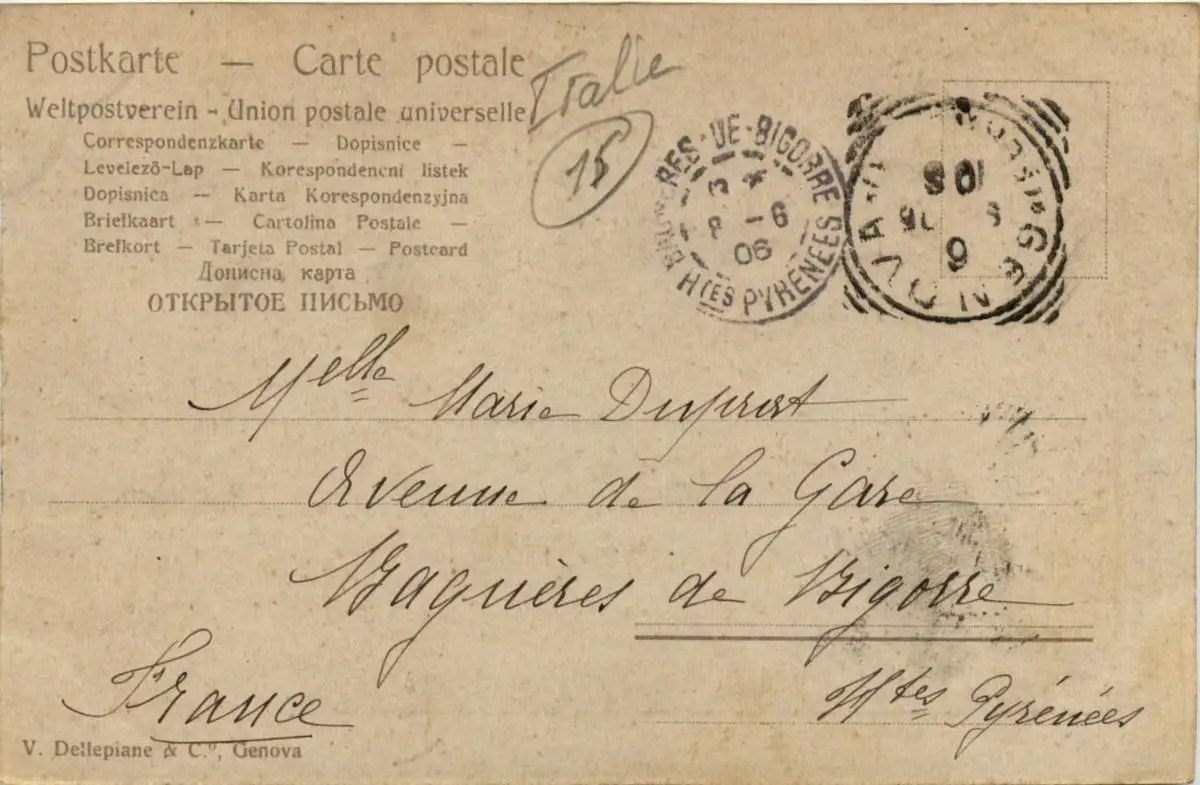 Postkarte — Carte postale
Weltpostverein - Union postale universelle
Correspondenzkarte — Dopisnice —
Levelező-Lap — Korespondencni listek
Dopisnica — Karta Korespondenzyjna
Briefkaart — Cartolina Postale —
Brefkort — Tarjeta Postal — Postcard
Дописна карта
ОТКРЫТОЕ ПИСЬМО
Italie
15
BAGNERES-DE-BIGORRE
8 -6
06
Htes PYRENEES
GENOVA
Melle Marie Duprat
Avenue de la Gare
Bagnères de Bigorre
Htes Pyrénées
France
V. Dellepiane & C.º, Genova